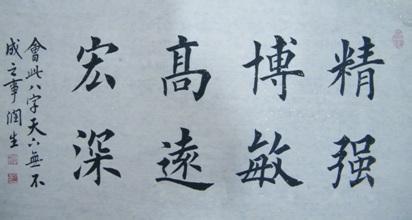 精强
博敏
髙遠
宏深
會此八字天下無不
成之事潤生